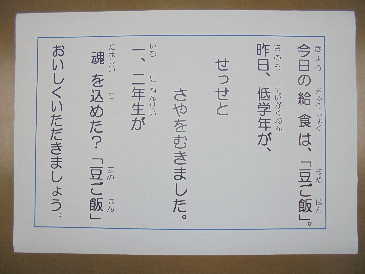 今日の給食は、「豆ご飯」。
昨日、低学年が、
せっせと
さやをむきました。
一、二年生が
魂を込めた?「豆ご飯」
おいしくいただきましょう。